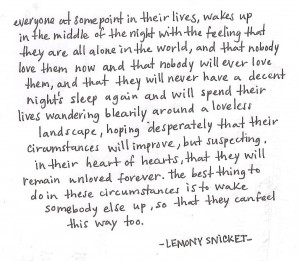 everyone at some point in their lives, wakes up
in the middle of the night with the feeling that
they are all alone in the world, and that nobody
love them now and that nobody will ever love
them, and that they will never have a decent
night's sleep again and will spend their
lives wandering blearily around a loveless
landscape, hoping desperately that their
circumstances will improve, but suspecting,
in their heart of hearts, that they will
remain unloved forever. the best thing to
do in these circumstances is to wake
somebody else up, so that they can feel
this way too.
-LEMONY SNICKET-